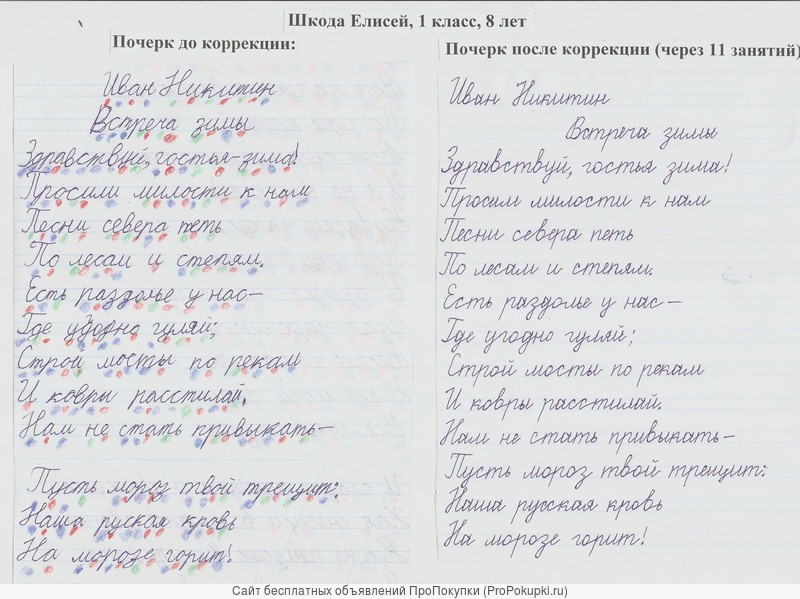 Шкода Елисей, 1 класс, 8 лет
Почерк до коррекции:
Иван Никитин
Встреча зимы
Здравствуй, гостья-зима!
Просили милости к нам
Песни севера петь
По лесам и степям.
Есть раздолье у нас—
Где угодно гуляй;
Строй мосты по рекам
И ковры расстилай.
Нам не стать привыкать—
Пусть мороз твой трещит:
Наша руская кровь
На морозе горит!
Почерк после коррекции (через 11 занятий)
Иван Никитин
Встреча зимы
Здравствуй, гостья зима!
Просим милости к нам
Песни севера петь
По лесам и степям.
Есть раздолье у нас—
Где угодно гуляй;
Строй мосты по рекам
И ковры расстилай.
Нам не стать привыкать—
Пусть мороз твой трещит:
Наша русская кровь
На морозе горит!
Сайт бесплатных объявлений ПроПокупки (ProPokupki.ru)